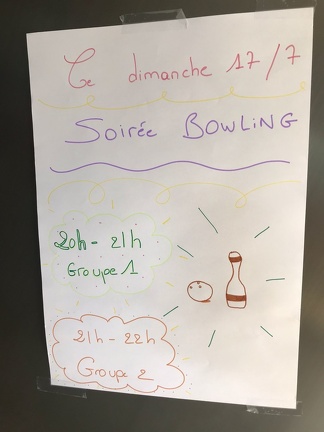 Ce dimanche 17/7
Soirée BOWLiNG
20h - 21h
Groupe 1
21h - 22h
Groupe 2